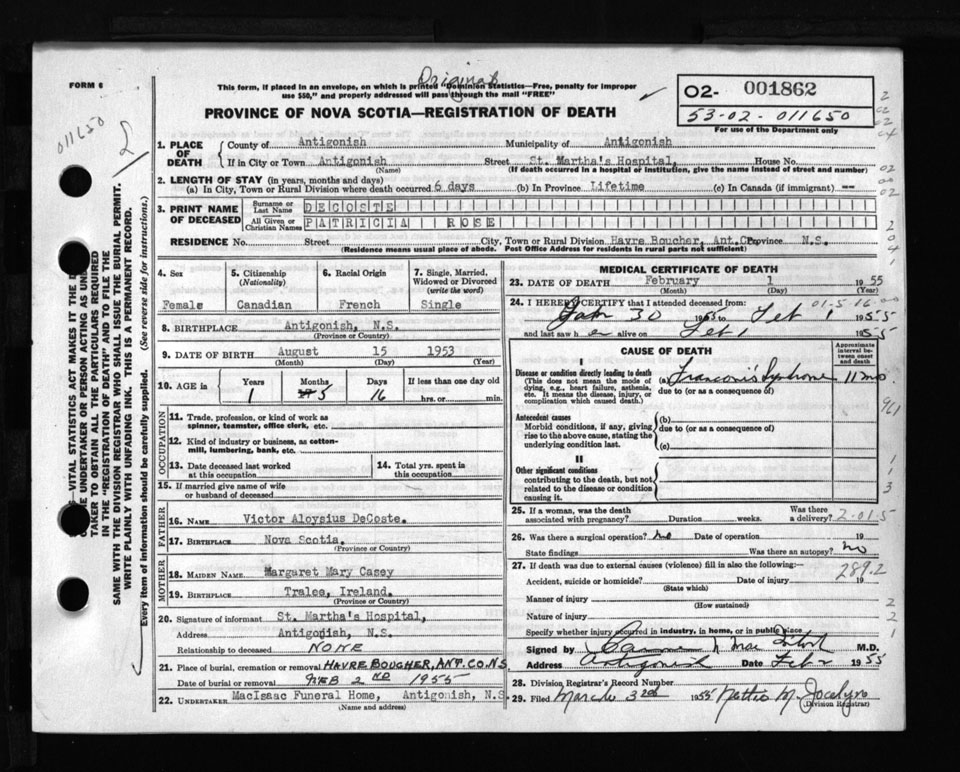 Original
FORM 6
This form, if placed in an envelope, on which is printed "Dominion Statistics—Free, penalty for improper
use $50," and properly addressed will pass through the mail "FREE"
PROVINCE OF NOVA SCOTIA—REGISTRATION OF DEATH
02- 001862
53-02-011650
For use of the Department only
011650
1. PLACE OF DEATH
County of Antigonish Municipality of Antigonish
If in City or Town Antigonish Street St. Martha's Hospital, House No.
(Name) (If death occurred in a hospital or institution, give the name instead of street and number)
2. LENGTH OF STAY (in years, months and days)
(a) In City, Town or Rural Division where death occurred 6 days (b) In Province Lifetime (c) In Canada (if immigrant) --
3. PRINT NAME OF DECEASED
Surname or Last Name DECOSTE
All Given or Christian Names PATRICIA ROSE
RESIDENCE No. Street City, Town or Rural Division Havre Boucher, Ant.Co. Province N.S.
(Residence means usual place of abode. Post Office Address for residents in rural parts not sufficient)
4. Sex Female
5. Citizenship (Nationality) Canadian
6. Racial Origin French
7. Single, Married, Widowed or Divorced (write the word) Single
8. BIRTHPLACE Antigonish, N.S.
(Province or Country)
9. DATE OF BIRTH August 15 1953
(Month) (Day) (Year)
10. AGE in Years Months Days If less than one day old
1 5 16 hrs. or min.
OCCUPATION
11. Trade, profession, or kind of work as
spinner, teamster, office clerk, etc.
12. Kind of industry or business, as cotton-
mill, lumbering, bank, etc.
13. Date deceased last worked
at this occupation
14. Total yrs. spent in
this occupation
15. If married give name of wife
or husband of deceased
FATHER
16. NAME Victor Aloysius DeCoste.
17. BIRTHPLACE Nova Scotia.
(Province or Country)
MOTHER
18. MAIDEN NAME Margaret Mary Casey
19. BIRTHPLACE Tralee, Ireland.
(Province or Country)
20. Signature of informant St. Martha's Hospital,
Address Antigonish, N.S.
Relationship to deceased NONE
21. Place of burial, cremation or removal HAVRE BOUCHER, ANT. CO. N.S
Date of burial or removal FEB 2ND 1955
22. UNDERTAKER MacIsaac Funeral Home, Antigonish, N.S
(Name and address)
MEDICAL CERTIFICATE OF DEATH
23. DATE OF DEATH February 1 1955
(Month) (Day) (Year)
24. I HEREBY CERTIFY that I attended deceased from: 01-5-16-00
Jan 30 1955 to Feb 1 1955
and last saw her alive on Feb 1 1955
CAUSE OF DEATH
Approximate interval between onset and death
I
Disease or condition directly leading to death
(This does not mean the mode of
dying, e.g., heart failure, asthenia,
etc. It means the disease, injury, or
complication which caused death.)
(a) Franconi's Syndrome 11 mo
due to (or as a consequence of)
Antecedent causes
Morbid conditions, if any, giving
rise to the above cause, stating the
underlying condition last.
(b)
due to (or as a consequence of)
(c)
II
Other significant conditions
contributing to the death, but not
related to the disease or condition
causing it.
961
25. If a woman, was the death
associated with pregnancy? Duration weeks. Was there
a delivery? 2-01-5
26. Was there a surgical operation? no Date of operation 19
State findings Was there an autopsy? no
27. If death was due to external causes (violence) fill in also the following:—
289.2
Accident, suicide or homicide? Date of injury 19
(State which)
Manner of injury
(How sustained)
Nature of injury
Specify whether injury occurred in industry, in home, or in public place
Signed by M.D.
Address Antigonish Date Feb 2 1955
28. Division Registrar's Record Number
29. Filed March 3rd 1955 Nettie M. Jocelyn
(Division Registrar)
VITAL STATISTICS ACT MAKES IT THE D
UNDERTAKER OR PERSON ACTING AS UN
TAKER TO OBTAIN ALL THE PARTICULARS REQUIRED
IN THE "REGISTRATION OF DEATH" AND TO FILE THE
SAME WITH THE DIVISION REGISTRAR WHO SHALL ISSUE THE BURIAL PERMIT.
WRITE PLAINLY WITH UNFADING INK. THIS IS A PERMANENT RECORD.
Every item of information should be carefully supplied. (See reverse side for instructions.)